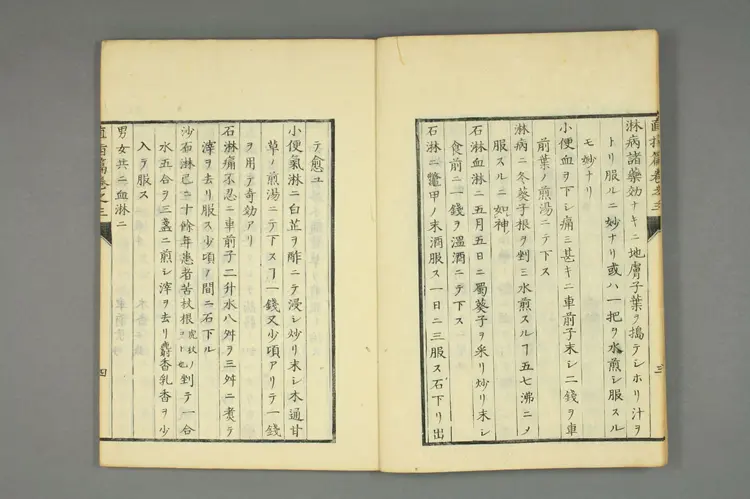 淋病諸藥効ナキニ地膚子葉ヲ搗テシホリ汁ヲ
トリ服ルニ妙ナリ或ハ一把ヲ水煎シ服スル
モ妙ナリ
小便血ヲ下シ痛ミ甚キニ車前子末シ二錢ヲ車
前葉ノ煎湯ニテ下ス
淋病ニ冬葵子根ヲ剉ミ水煎スルヿ五七沸ニメ
服スルニ如神
石淋血淋ニ五月五日ニ蜀葵子ヲ采リ炒リ末シ
食前ニ一錢ヲ溫酒ニテ下ス
石淋ニ鼈甲ノ末酒服ス一日ニ三服ス石下リ出
三
テ愈ユ
小便氣淋ニ白芷ヲ酢ニテ浸シ炒リ末シ木通甘
草ノ煎湯ニテ下スヿ一錢又少頃アリテ一錢
ヲ用テ奇効アリ
石淋痛不忍ニ車前子二升水八舛ヲ三舛ニ煑テ
滓ヲ去リ服ス少頃ノ間ニ石下ル
沙石淋已ニ十餘年患者苦杖根虎杖ノコト也剉テ一合
水五合ヲ三盞ニ煎シ滓ヲ去リ麝香乳香ヲ少
入ラ服ス
男女共ニ血淋ニ
篇卷之三
四